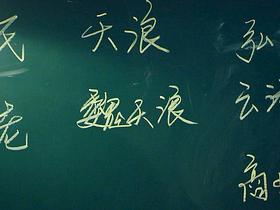 民 天浪 弘
老 魏天浪 云
商